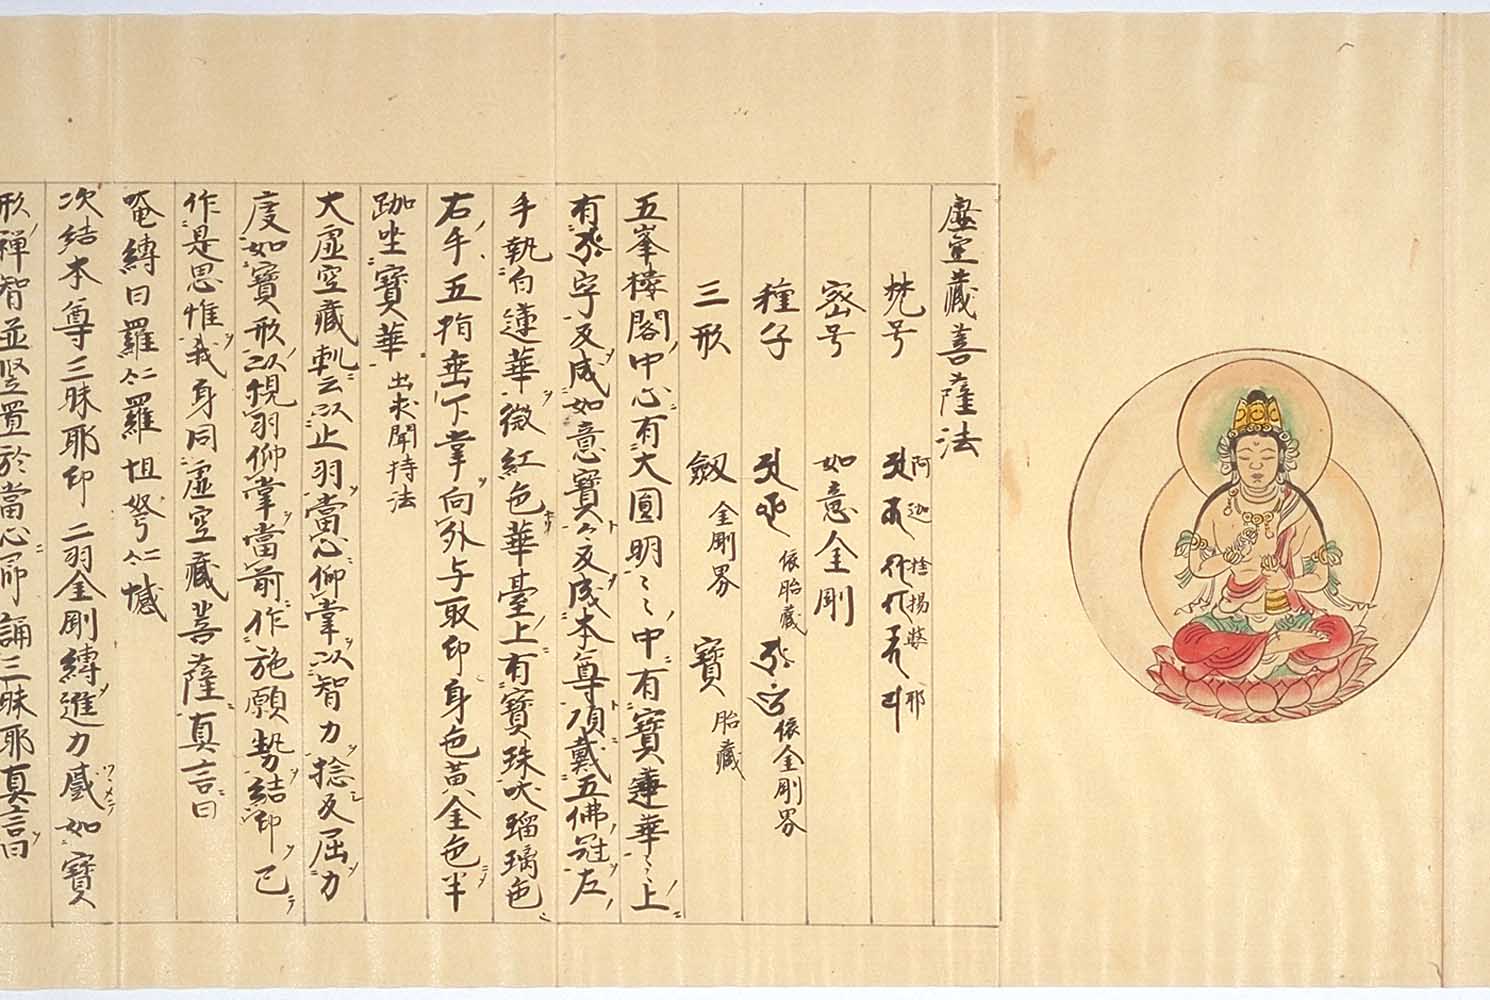 虚空藏菩薩法
梵号 阿迦捨掲婆耶
密号 如意金剛
種子 依胎藏 依金剛界
三形 釼 金剛界 寶 胎藏
五峯樓閣中心有大圓明〻中有寶蓮華〻上
有字反成如意寶〻反成本尊頂戴五佛冠左
手執白蓮華微紅色華臺上有寶珠吠瑠璃色
右手五指垂下掌向外与取印身色黄金色半
跏坐寶華 出求聞持法
大虚空藏軌云以止羽當心仰掌以智力捻反屈力
度如寶形以観羽仰掌當前作施願勢結印已
作是思惟我身同虚空藏菩薩真言曰
唵縛曰羅仁羅怛努仁憾
次結本尊三昧耶印二羽金剛縛進力蹙如寶
形禪智並竪置於當心即誦三昧耶真言曰